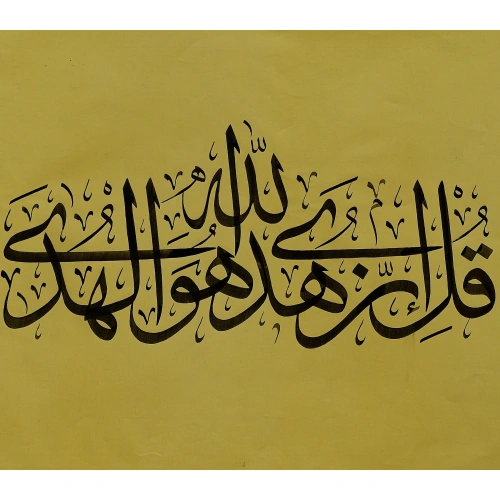 قُل إنّ هُدَى اللّٰه هُوَ الهُدَى